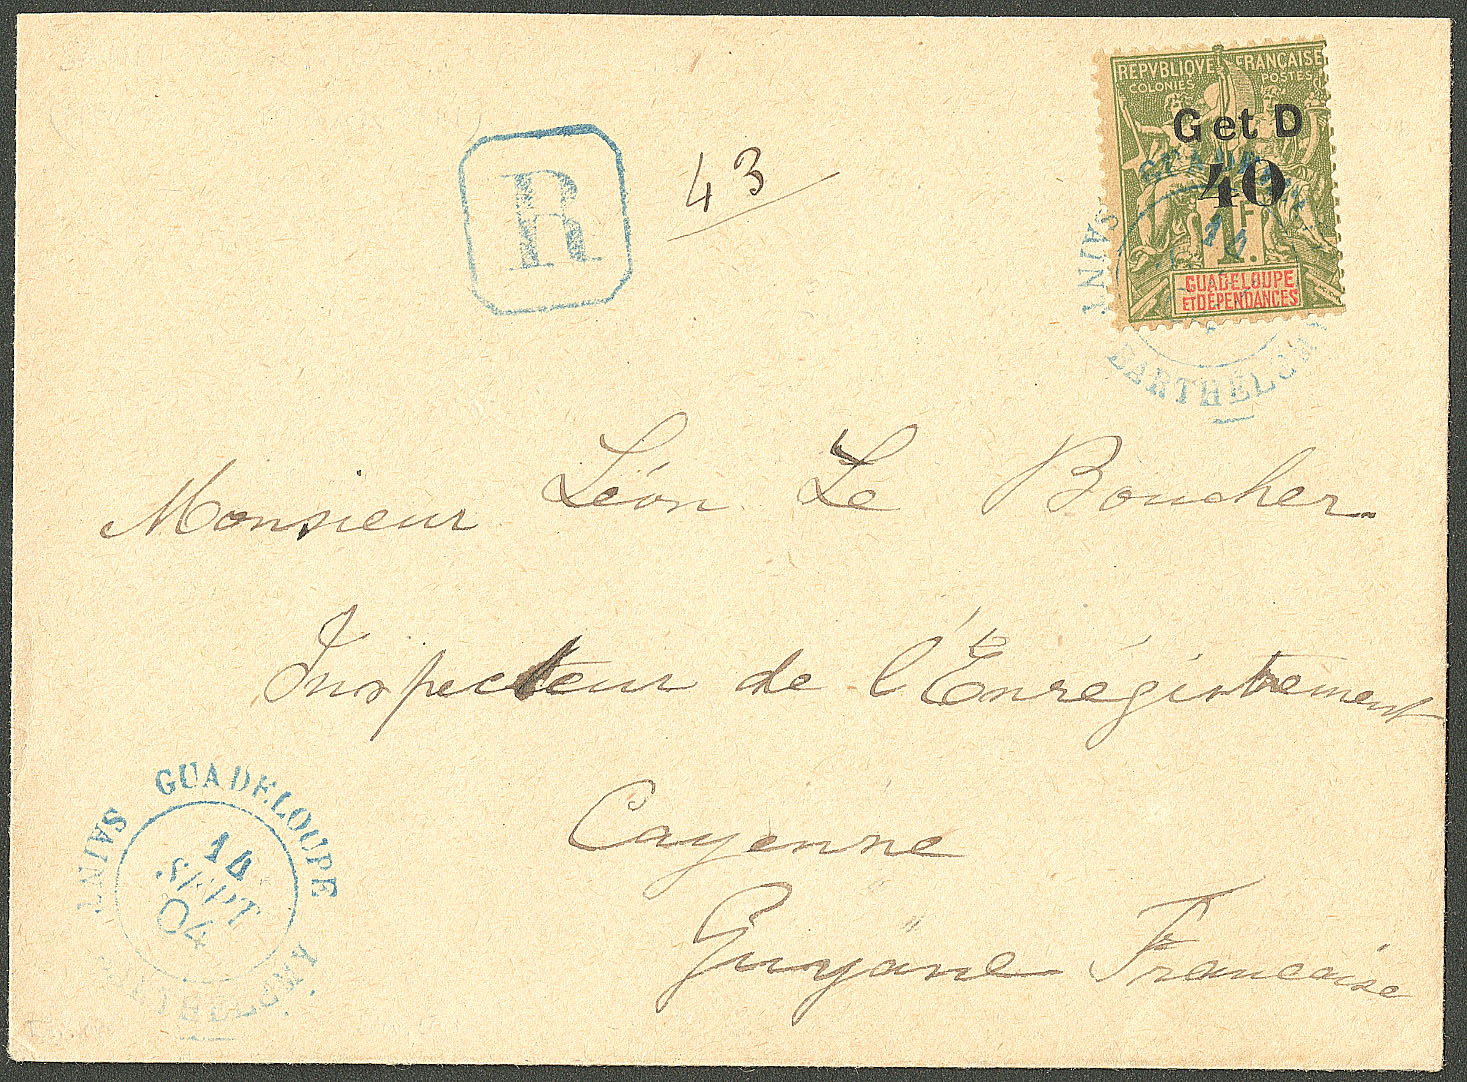 REPVBLIQVE FRANÇAISE
COLONIES POSTES
G et D
40
1F.
GUADELOUPE
ET DÉPENDANCES
R
43
14
SAINT BARTHÉLEMY
Monsieur Léon Le Boucher
Inspecteur de l'Enrégistrement
Cayenne
Guyane Francaise
GUADELOUPE
SAINT BARTHELEMY
14
SEPT
04